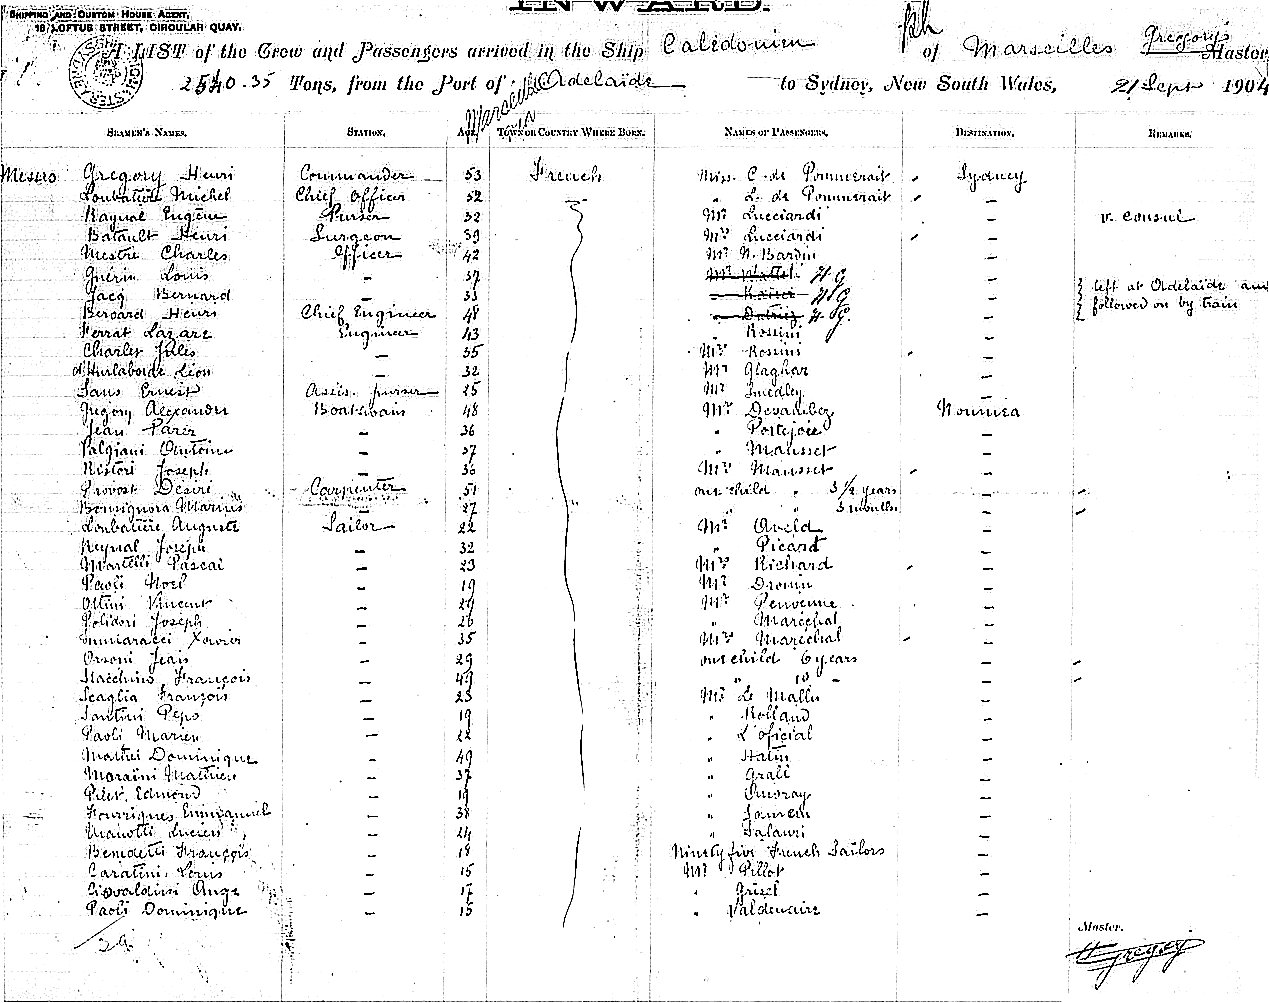 SHIPPING AND CUSTOM HOUSE AGENT,
18 LOFTUS STREET, CIRCULAR QUAY.
INWARD.
A LIST of the Crew and Passengers arrived in the Ship Calédonien of Marseilles Gregory Master
2540.35 Tons, from the Port of Adelaide to Sydney, New South Wales, 21 Sept 1904
Marseille
SEAMEN'S NAMES. STATION. AGE. TOWN OR COUNTRY WHERE BORN. NAMES OF PASSENGERS. DESTINATION. REMARKS.
Messrs Gregory Henri Commander 53 French Miss. C. de Pommerait " Sydney
Loubatière Michel Chief Officer 52 " L. de Pommerait " —
Raynal Eugène Purser 32 Mr Lucciardi — v. Consul
Batault Henri Surgeon 39 Mrs Lucciardi " —
Mestre Charles Officer 42 Mr N. Bardin —
Guérin Louis — 37 —
Jacq Bernard — 33 — } left at Adelaide and
Beroard Henri Chief Engineer 48 — } followed on by train
Ferrat Lazare Engineer 43 " Rossini —
Charles Jules — 35 Mrs Rossini " —
d'Hurlaborde Léon — 32 Mr Glaghar —
Sans Ernest Assis. purser 25 Mr Smedley —
Gregory Alexander Boatswain 48 Mr Devambez Noumea
Jean Parer — 36 " Portejoie —
Valgiani Antoine — 37 " Mausset —
Ristori Joseph — 36 Mrs Mausset " —
Provost Désiré Carpenter 51 one child " 3 1/2 years — "
Bonsignora Marius — 27 " " 3 months — "
Loubatière Auguste Sailor 22 Mr Aveld —
Reynal Joseph — 32 " Picard —
Martelli Pascal — 23 Mrs Richard " —
Paoli Noel — 19 Mr Drouin —
Ottini Vincent — 29 Mr Penvenne —
Polidori Joseph — 26 " Maréchal —
Xavier — 35 Mrs Maréchal " —
Orsoni Jean — 29 one child 6 years — "
Stacchino François — 49 " " 10 " — "
Scaglia François — 23 Mr Le Mallu —
Santini Pepo — 19 " Rolland —
Paoli Marien — 22 " L'official —
Mattei Dominique — 49 " Hatin —
Moraini Mathieu — 37 " Arali —
Piler Edmond — 19 " —
Fourrigues Emmanuel — 38 " —
Mariotti Lucien — 24 " Salauri —
Benedetti François — 18 Ninety five French Sailors —
Caratini Louis — 15 Mr Pillot —
Ange — 17 " Grisel —
Paoli Dominique — 15 " Valdenaire —
Master.
H Gregory